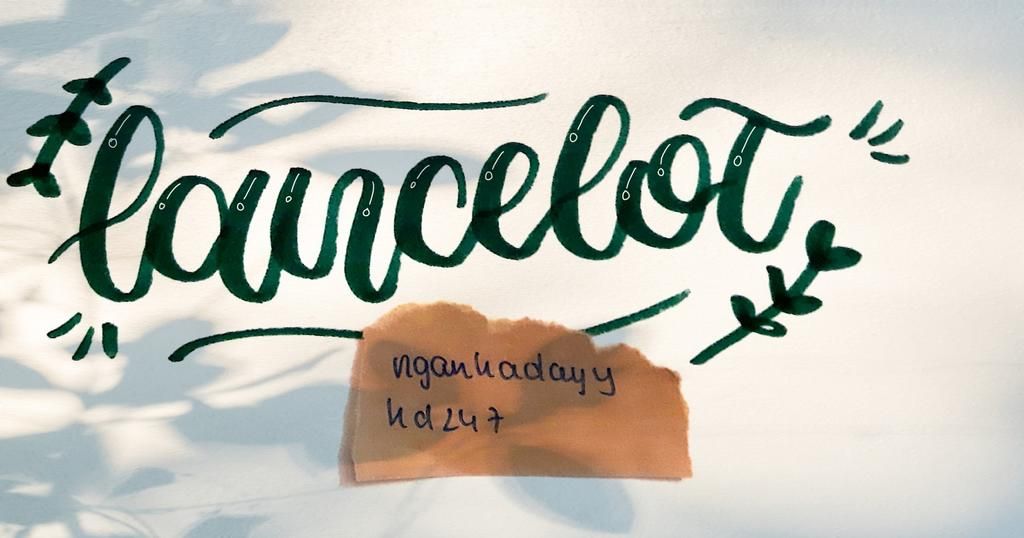 lancelot
ngankadayy
kd247